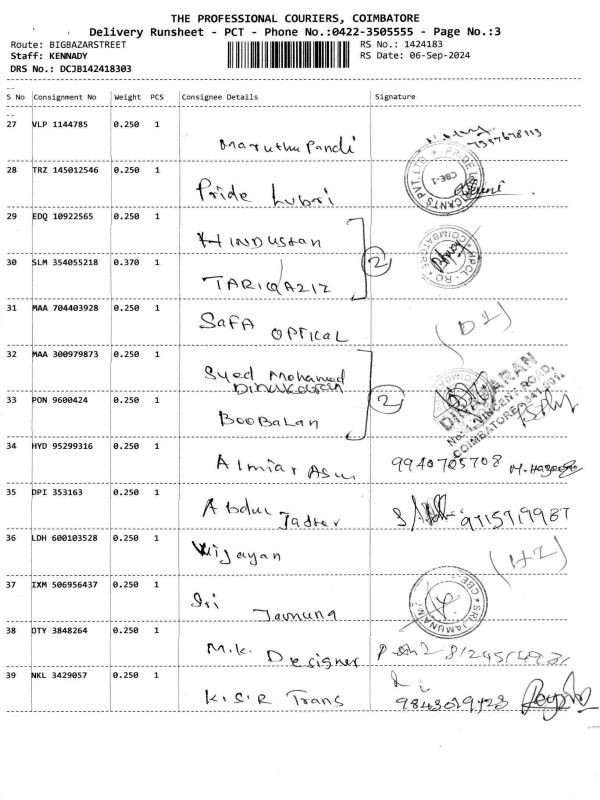 THE PROFESSIONAL COURIERS, COIMBATORE
Delivery Runsheet - PCT - Phone No.:0422-3505555 - Page No.:3
Route: BIGBAZARSTREET RS No.: 1424183
Staff: KENNADY RS Date: 06-Sep-2024
DRS No.: DCJB142418303
S No Consignment No Weight PCS Consignee Details Signature
27 VLP 1144785 0.250 1
Maruthu Pandi
28 TRZ 145012546 0.250 1
Pride Lubri
29 EDQ 10922565 0.250 1
HINDUSTAN
30 SLM 354055218 0.370 1 2
TARIQ AZIZ
31 MAA 704403928 0.250 1
SAFA OPTICAL (D1)
32 MAA 300979873 0.250 1
Syed Mohamed
DINAKARAN
33 PON 9600424 0.250 1 2
BOOBALAN
No. VINCENT ROAD,
COIMBATORE
34 HYD 95299316 0.250 1
Almiar 9940705708
35 DPI 353163 0.250 1
Abdul 9715719987
36 LDH 600103528 0.250 1
Vijayan
37 IXM 506956437 0.250 1
Sri Jamuna SRI JAMUNA CBE
38 OTY 3848264 0.250 1
M.K. Designer
39 NKL 3429057 0.250 1
K.S.R Trans